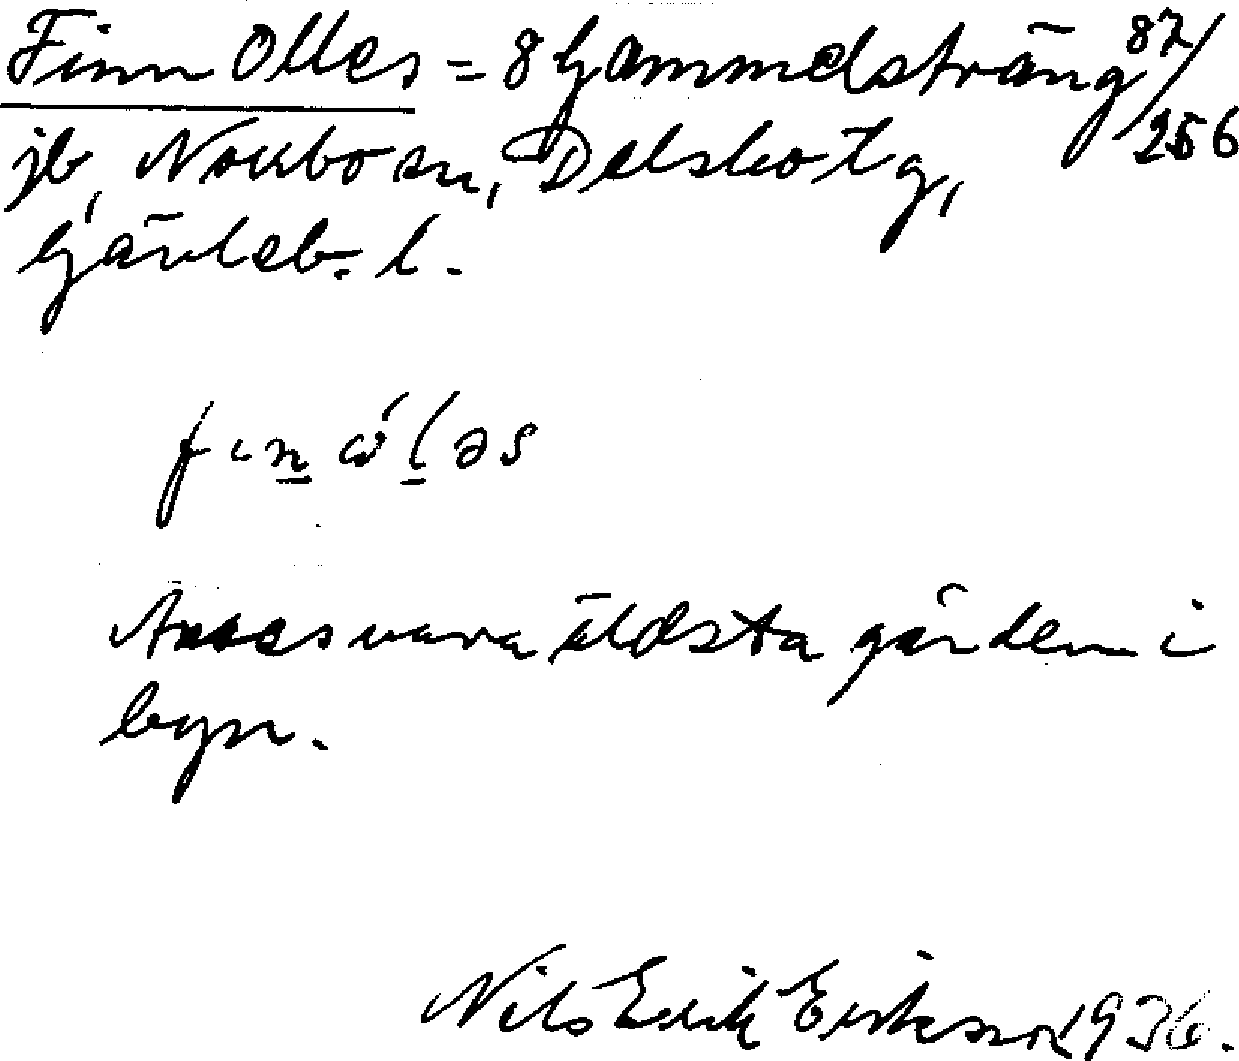 Finn Olles = 8 Gammelsträng 87/256
jb, Norrbo sn, Delsbo tg,
Gävleb. l.
fin ώləs
Anses vara äldsta gården i
byn.
Nils Erik Eriksson 1936.